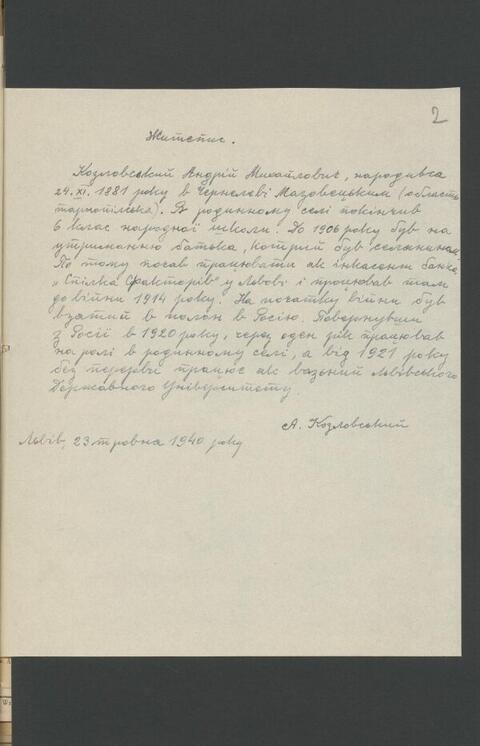 2
Житєпис.
Козловський Андрій Михайлович, народився
24.XI.1881 року в Чернелеві Мазовецьким (область
тарнопільська). В родинному селі покінчив
6 клас народної школи. До 1906 року був на
утриманню батька, котрий був селянином.
По тому почав працювати як інкасент банка
„Спілка Факторів" у Львові і працював там
до війни 1914 року. На початку війни був
взятий в полон в Росію. Повернувши
з Росії в 1920 року, через оден рік працював
на ролі в родинному селі, а від 1921 року
без перерви працює як возьний Львівського
Державного Університету.
А. Козловський
Львів, 23 травня 1940 року